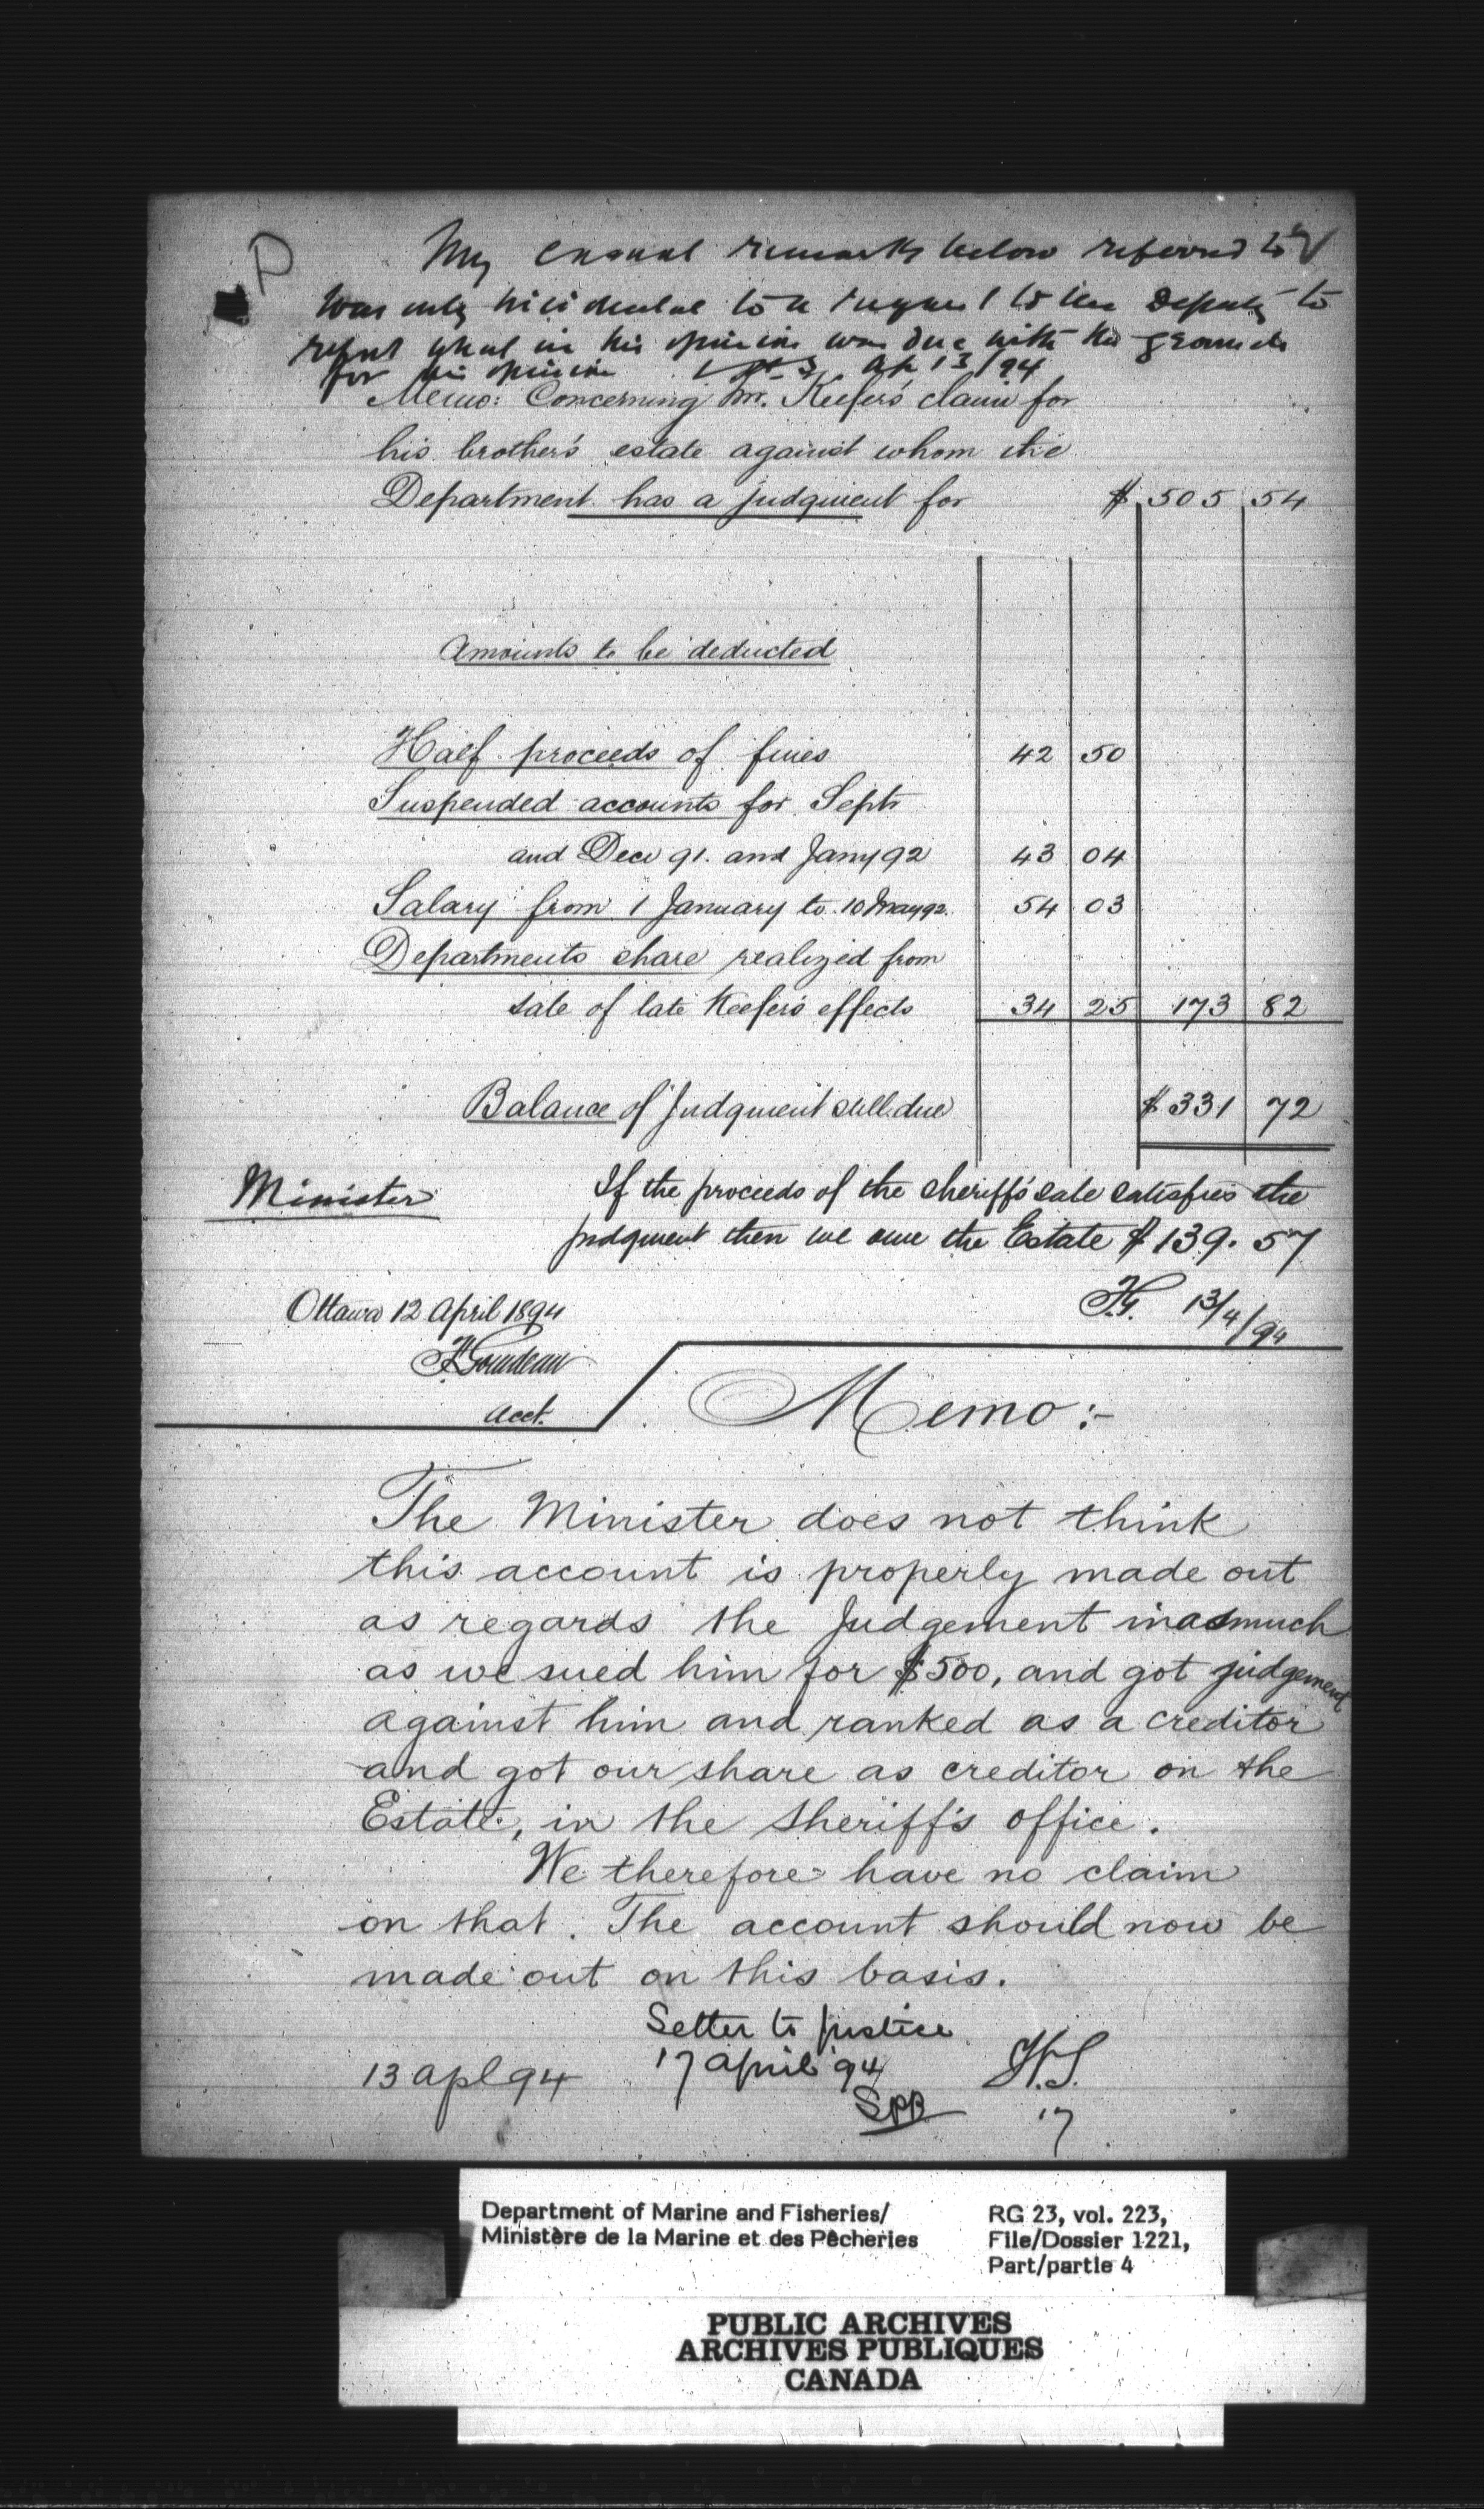 P
My casual remarks below referred to
was only incidental to a request to the Deputy to
report what in his opinion was due with the grounds
for his opinion Ap 13/94
Memo: Concerning Mr. Keefer's claim for
his brother's estate against whom the
Department has a judgment for $ 505 54
Amounts to be deducted
Half proceeds of fines 42 50
Suspended accounts for Septr
and Decr 91. and Jany 92 43 04
Salary from 1 January to 10 May 92. 54 03
Departments share realized from
sale of late Keefer's effects 34 25 173 82
Balance of Judgment still due $ 331 72
Minister
If the proceeds of the sheriff's sale satisfies the
judgment then we owe the Estate $139.57
Ottawa 12 April 1894
F.G. 13/4/94
F Gourdeau
Acct.
Memo:-
The Minister does not think
this account is properly made out
as regards the Judgement inasmuch
as we sued him for $500, and got judgement
against him and ranked as a creditor
and got our share as creditor on the
Estate, in the sheriff's office.
We therefore have no claim
on that. The account should now be
made out on this basis.
Letter to Justice
17 April '94
SPB
13 apl 94
17
Department of Marine and Fisheries/
Ministère de la Marine et des Pêcheries
RG 23, vol. 223,
File/Dossier 1221,
Part/partie 4
PUBLIC ARCHIVES
ARCHIVES PUBLIQUES
CANADA